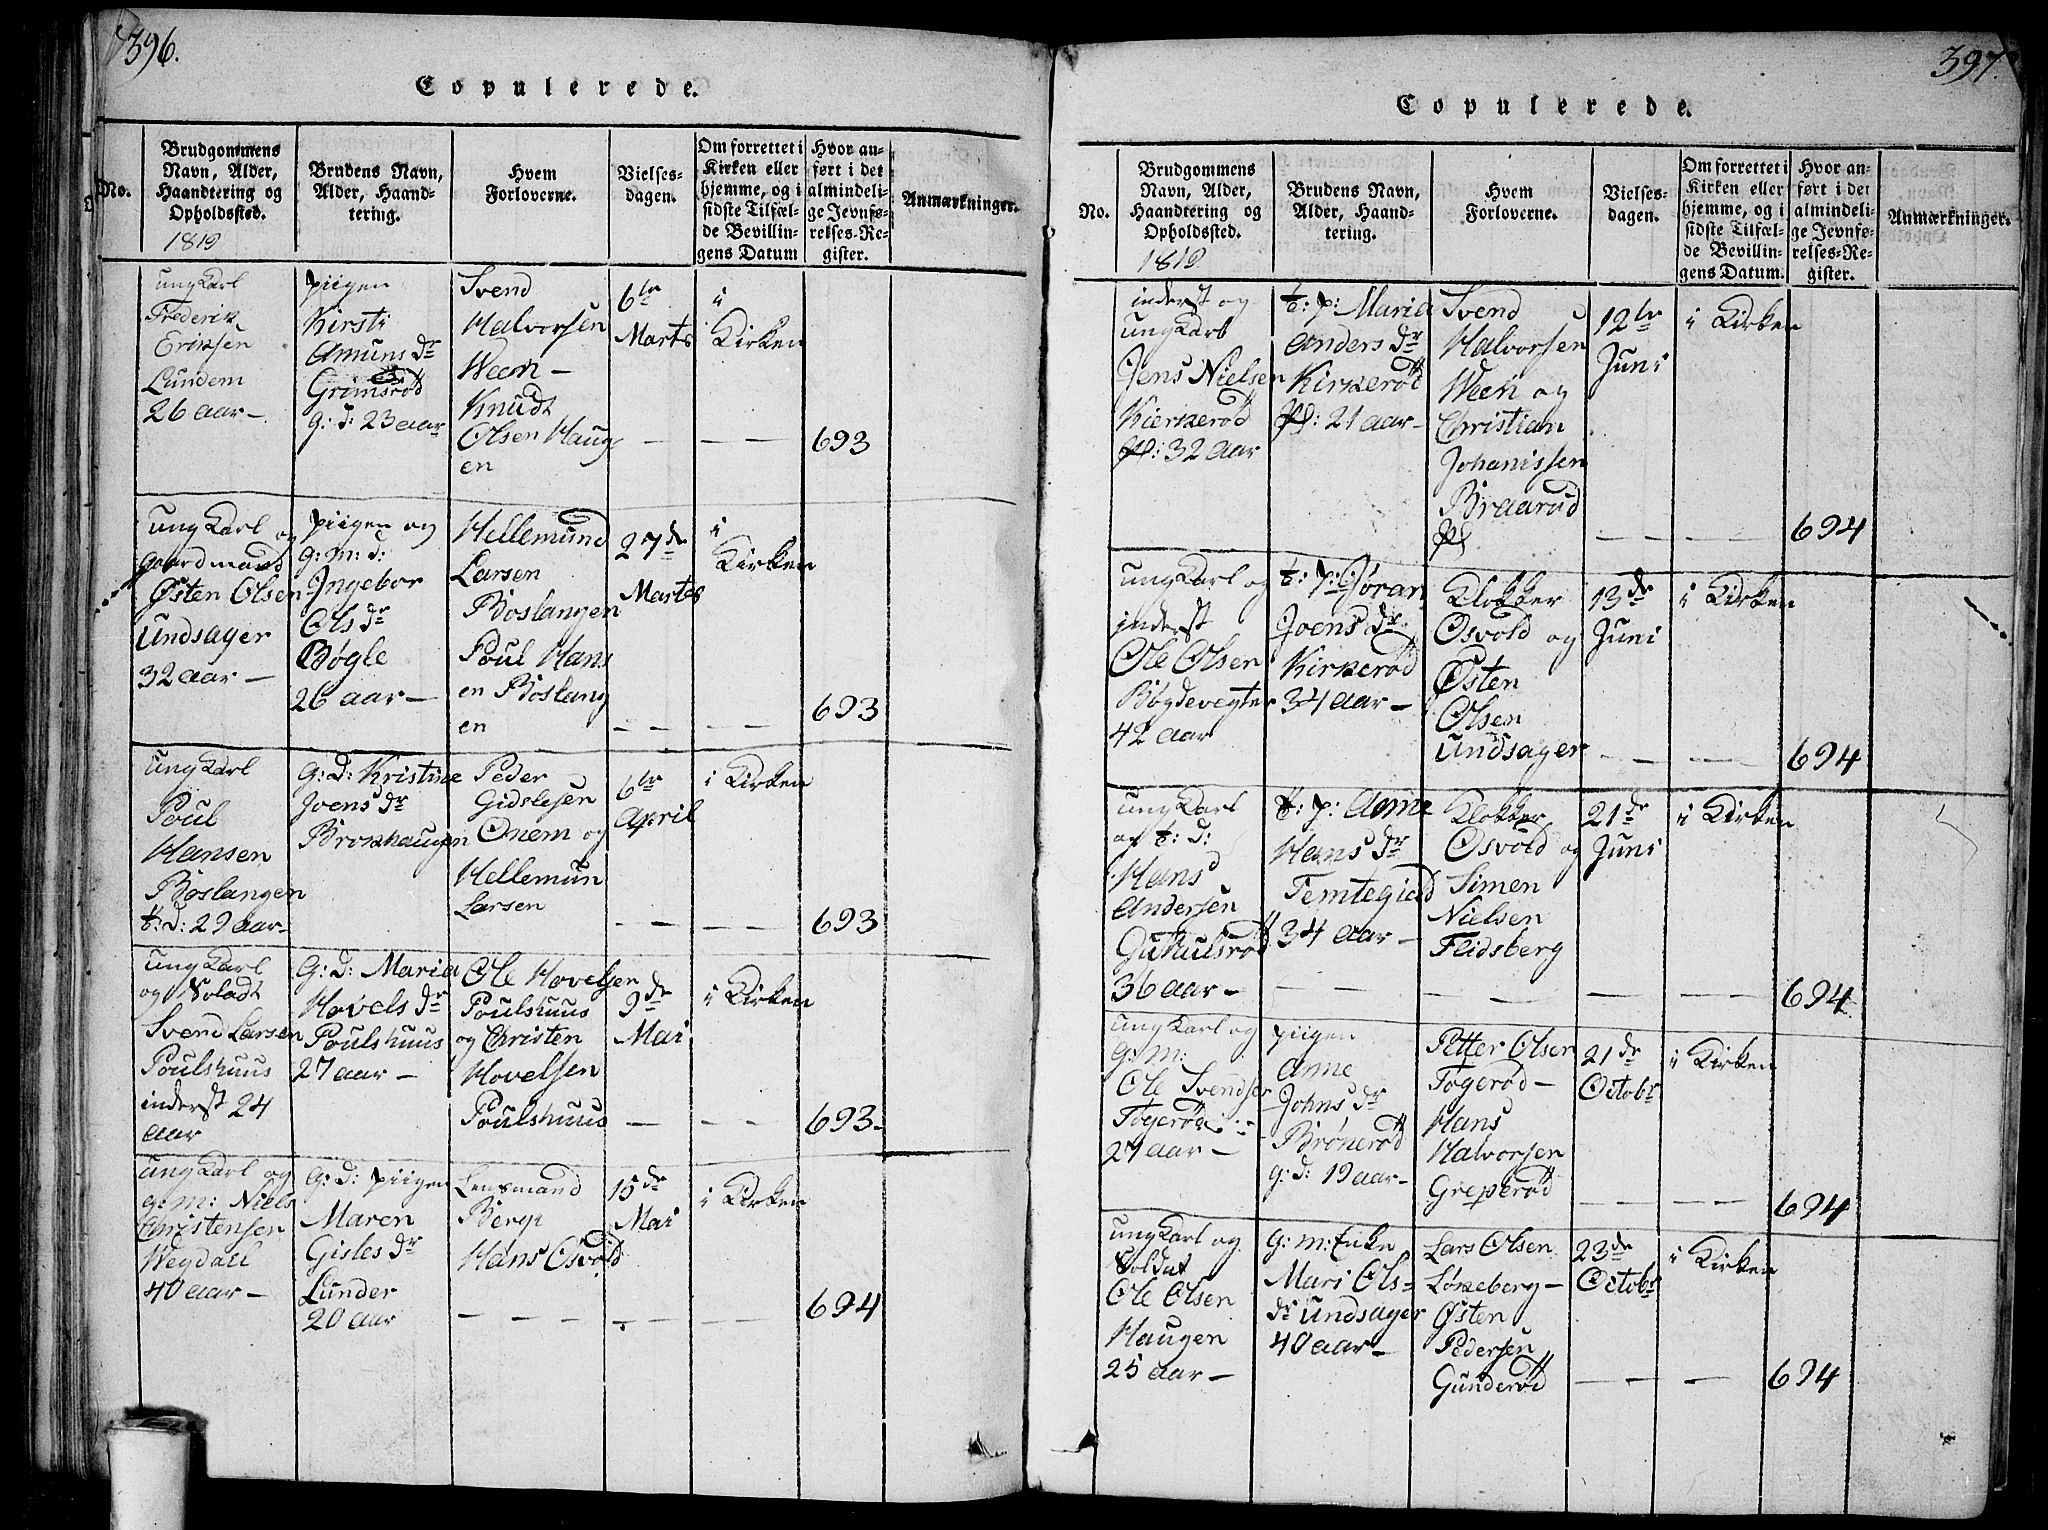 396.
Copulerede.
No.
Brudgommens
Navn, Alder,
Haandtering og
Opholdssted.
1819
Brudens Navn,
Alder, Haand-
tering.
Hvem
Forloverne.
Vielses-
dagen.
Om forrettet i
Kirken eller
hjemme, og i
sidste Tilfæl-
de Bevillin-
gens Datum
Hvor an-
ført i det
almindeli-
ge Jevnfø-
relses-Re-
gister.
Anmærkninger.
ungKarl
Frederik
Eriksen
Lundem
26 aar —
piigen
Kirsti
Amuns dr
Grimsrød
g: d: 23 aar
Svend
Halvorsen
Ween —
Knudt
Olsen Haug
en
6te
Marts
i
Kirken
693
ungKarl og
gaardmand
Østen Olsen
Undsager
32 aar —
piigen og
g: m: d:
Ingebor
Ols dr
Bøgle
26 aar —
Hellemund
Larsen
Boslangen
Poul Hans
en Boslang
en
27de
Marts
i
Kirken
693
ungKarl
Poul
Hansen
Boslangen
t: d: 29 aar-
G: d: Kristine
Joens dr
Brokhaugen
Peder
Gidslesen
Onem og
Hellemun
Larsen
6te
April
i Kirken
693
ungKarl
og Soladt
Svend Larsen
Poulshuus
inderst 24
aar
G: d: Maria
Hovels dr
Poulshuus
27 aar —
Ole Hovelsen
Poulshuus
og Christen
Hovelsen
Poulshuus
9de
Mai
i Kirken
693-
ungKarl og
g: m: Niels
Christensen
Wegdall
40 aar —
G: d: piigen
Maren
Gisles dr
Lunder
20 aar
Lensmand
Berge
Hans Osvold
15de
Mai
i Kirken
694
397.
Copulerede.
No.
Brudgommens
Navn, Alder,
Haandtering og
Opholdssted.
1819
Brudens Navn,
Alder, Haand-
tering.
Hvem
Forloverne.
Vielses-
dagen.
Om forrettet i
Kirken eller
hjemme, og i
sidste Tilfæl-
de Bevillin-
gens Datum.
Hvor an-
ført i det
almindeli-
ge Jevnfø-
relses-Re-
gister.
Anmærkninger.
inderst og
ungKarl
Jens Nielsen
Kierkerød
pl: 32 aar
t: p: Maria
Anders dr
Kirkerød
pl: 21 aar-
Svend
Halvorsen
Ween og
Christian
Johanissen
Braarød
pl
12te
Juni
i Kirken
694
ungKarl og
inderst
Ole Olsen
Bøgdevegter
42 aar
t: p: Jøran
Joens dr
Kirkerød
34 aar —
Klokker
Osvold og
Østen
Olsen
Undsager
13de
Juni
i Kirken
694
ungKarl
og t: d:
Hans
Andersen
Gutulsrød
36 aar —
t: p: Anne
Hans dr
Femtegield
34 aar —
Klokker
Osvold og
Simen
Nielsen
Flidsberg
21de
Juni
i Kirken
694
ungKarl og
g: m:
Ole Svendsen
Togerød
27 aar —
piigen
Anne
Johns dr
Brønerød
g: d: 19 aar-
Petter Olsen
Togerød —
Hans
Halvorsen
Greperød
21de
Octobr
i Kirken
694
ungKarl og
Soldat
Ole Olsen
Haugen
25 aar —
G: m: Enke
Mari Ols-
dr Undsager
40 aar —
Lars Olsen
Løkeberg —
Østen
Pedersen
Gunderød
23de
Octobr
i Kirken
694